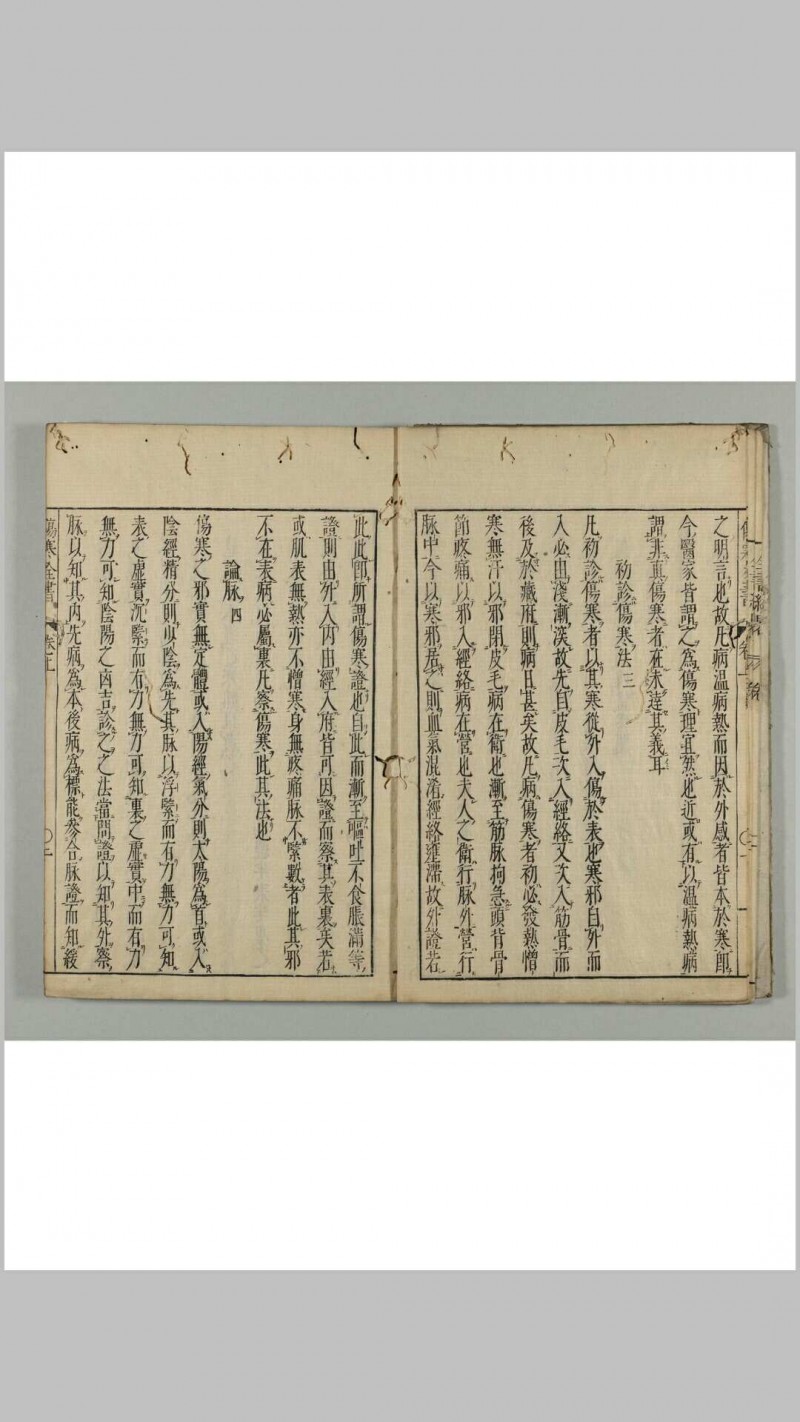 之明言也故凡病溫病熱而因於外感者皆本於寒即
今醫家皆謂之為傷寒理宜然也近或有以溫病熱病
謂非真傷寒者在未達其義耳
初診傷寒法 三
凡初診傷寒者以其寒從外入傷於表也寒邪自外而
入必由淺漸深故先自皮毛次入經絡又次入筋骨而
後及於藏府則病日甚矣故凡病傷寒者初必發熱憎
寒無汗以邪閉皮毛病在衛也漸至筋脉拘急頭背骨
節疼痛以邪入經絡病在營也夫人之衛行脉外營行
脉中今以寒邪居之則血氣混淆經絡壅滯故外證若
此此即所謂傷寒證也自此而漸至嘔吐不食脹滿等
證則由外入內由經入府皆可因證而察其表裏矣若
或肌表無熱亦不憎寒身無疼痛脉不緊數者此其邪
不在表病必屬裏凡察傷寒此其法也
論脉 四
傷寒之邪實無定體或入陽經氣分則太陽為首或入
陰經精分則少陰為先其脉以浮緊而有力無力可知
表之虛實沉緊而有力無力可知裏之虛實中而有力
無力可知陰陽之凶吉診之之法當問證以知其外察
脉以知其內先病為本後病為標能參合脉證而知緩
傷寒全書 卷上